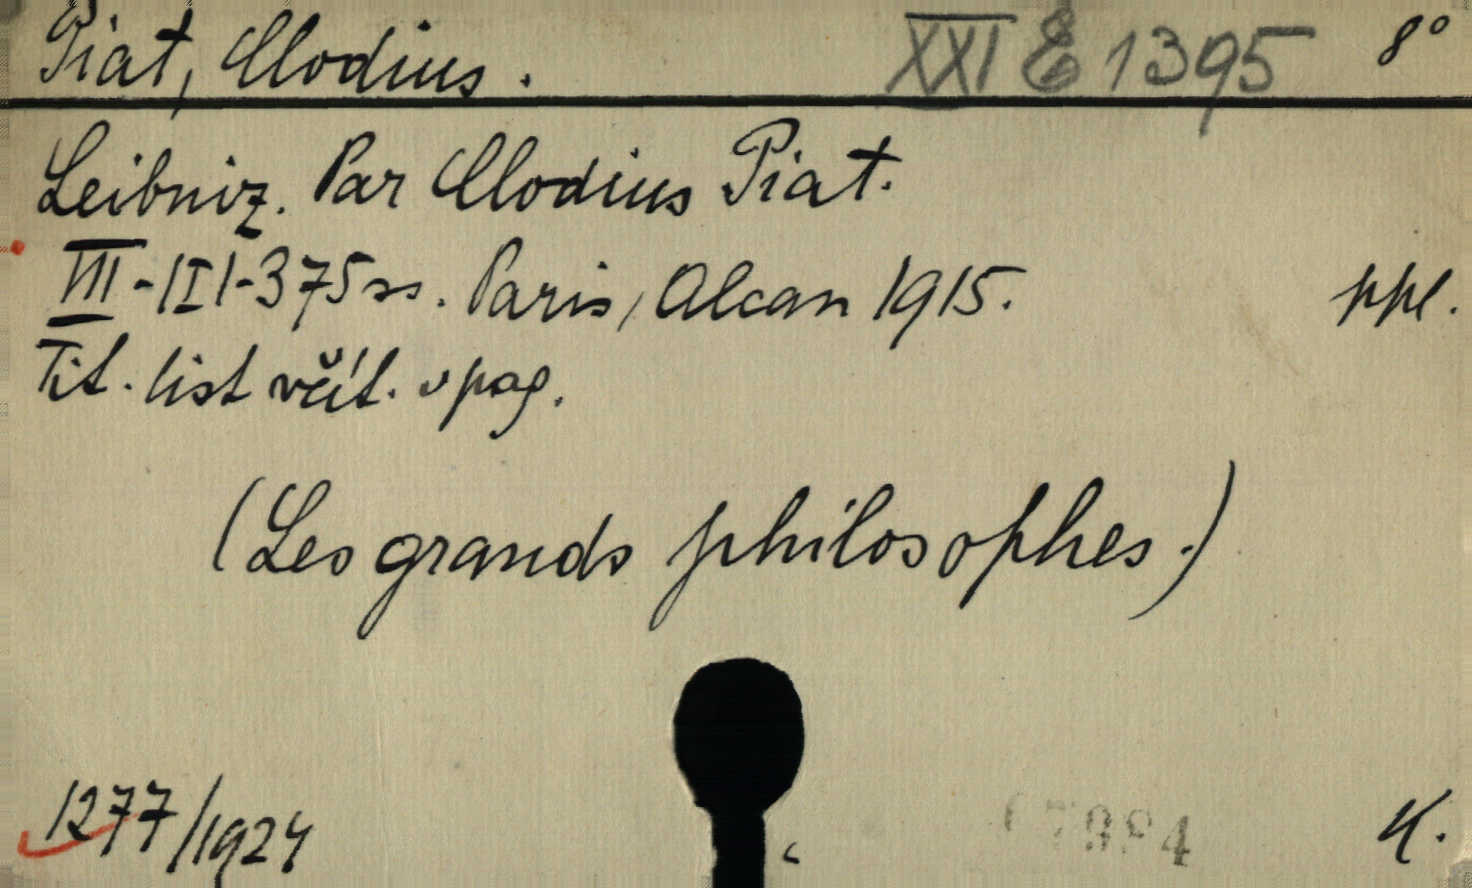 Piat, Clodius. XXI E 1395 8°
Leibniz. Par Clodius Piat.
VIII-|I|-375 ss. Paris, Alcan 1915. ppl.
Tit. list včít. v pag.
(Les grands philosophes.)
1277/1924 K.